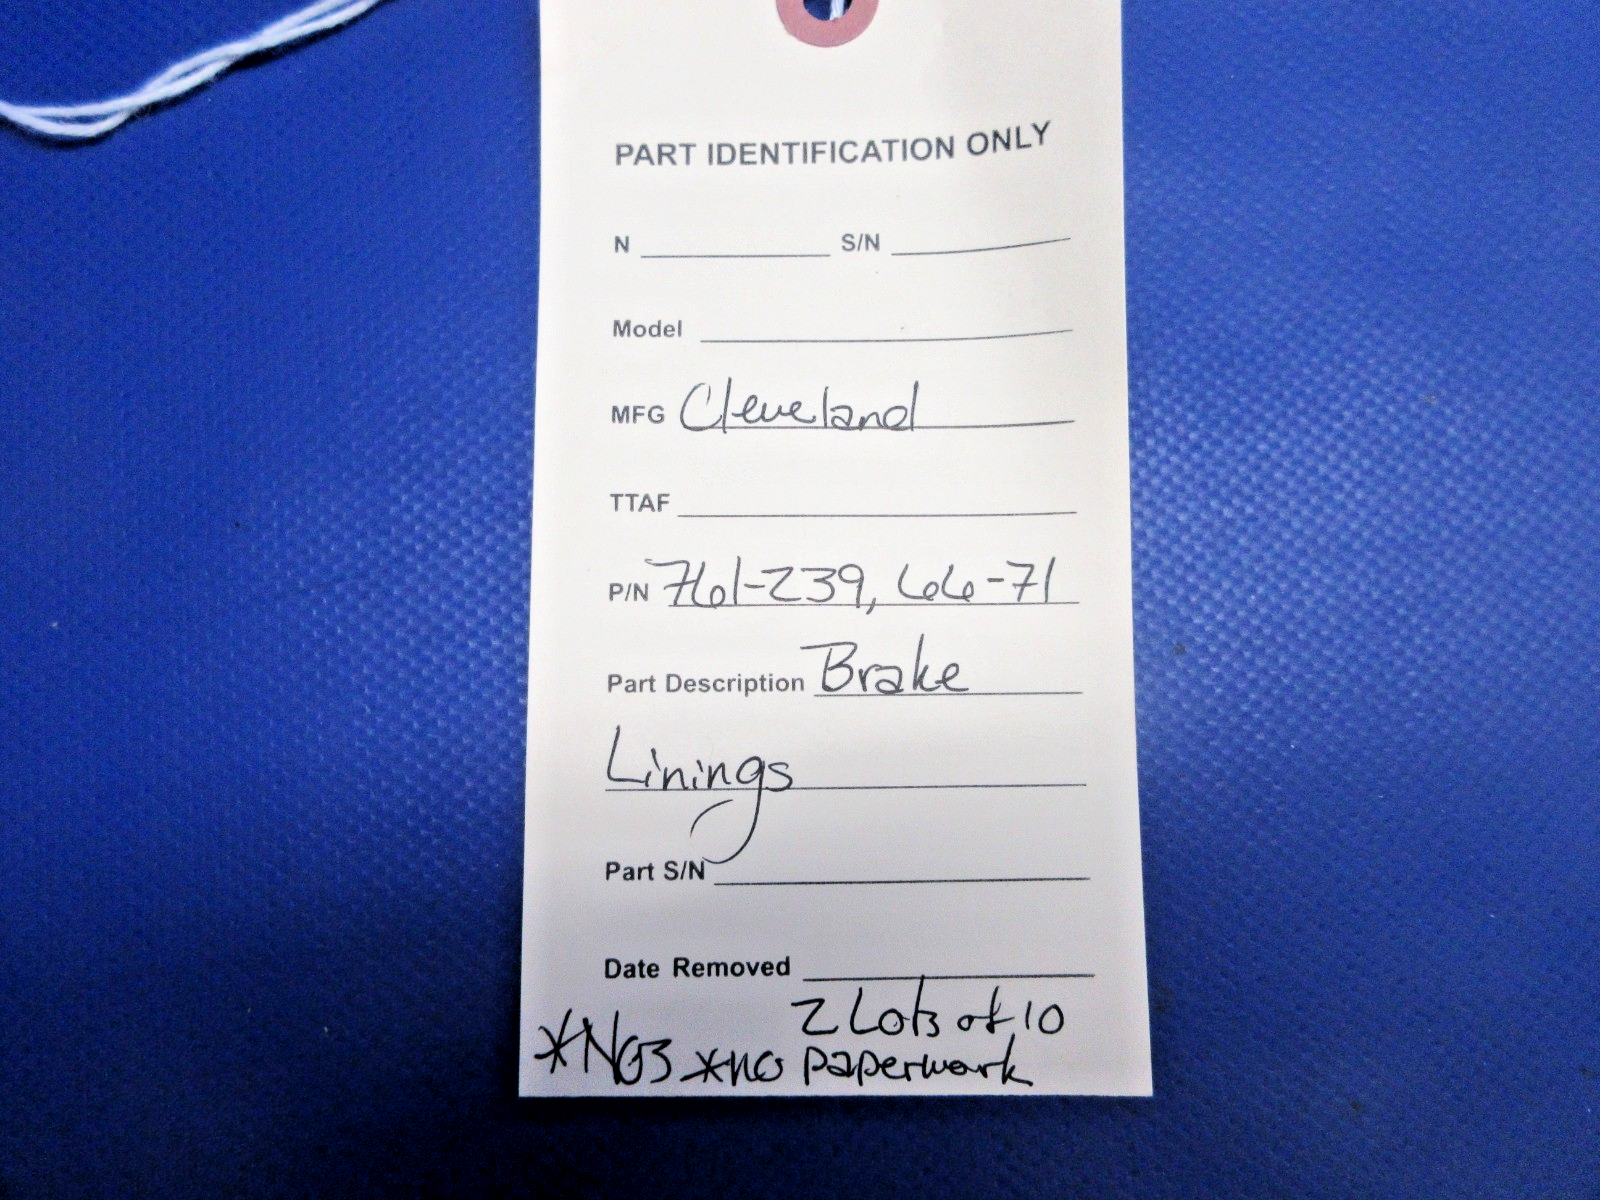 PART IDENTIFICATION ONLY
N S/N
Model
MFG Cleveland
TTAF
P/N 761-239, 66-71
Part Description Brake
Linings
Part S/N
Date Removed
2 Lots of 10
*NOS *no paperwork